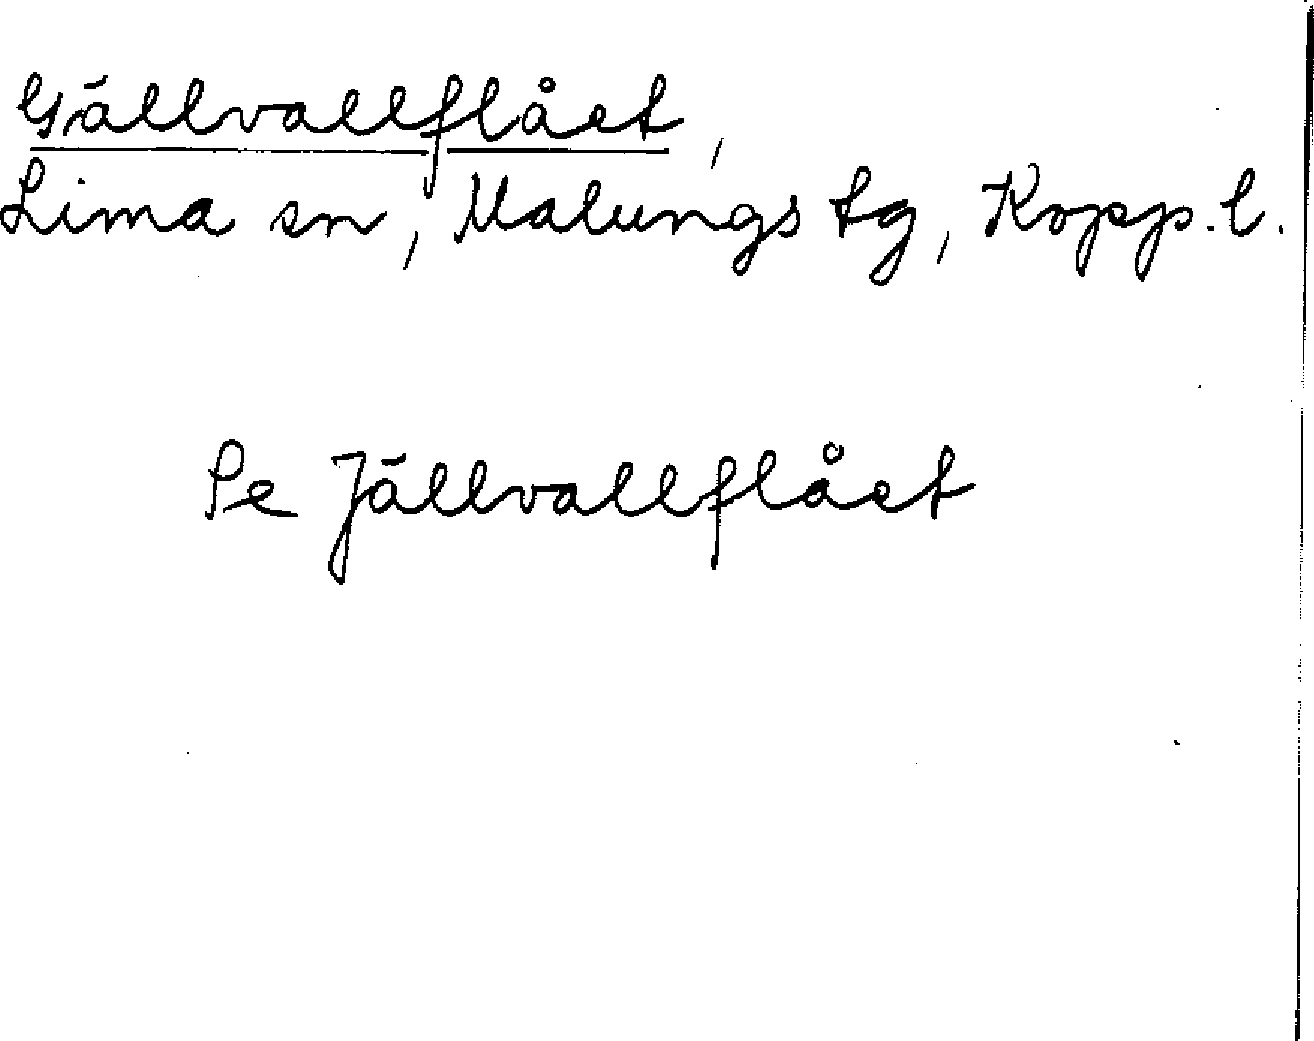 Gällvallflået,
Lima sn, Malungs tg, Kopp. l.
Se Jällvallflået